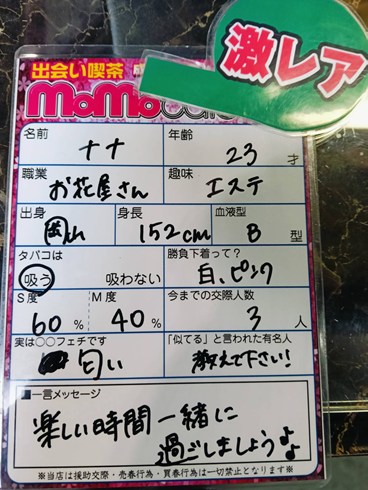 激レア
出会い喫茶
MoMoCafe
名前 ナナ 年齢 23 才
職業 お花屋さん 趣味 エステ
出身 岡山 身長 152cm 血液型 B 型
タバコは 吸う 吸わない 勝負下着って? 白、ピンク
S度 60% M度 40% 今までの交際人数 3 人
実は○○フェチです 匂い 「似てる」と言われた有名人 教えて下さい!
■一言メッセージ
楽しい時間一緒に
過ごしましょうよ
※当店は援助交際・売春行為・買春行為は一切禁止となります※